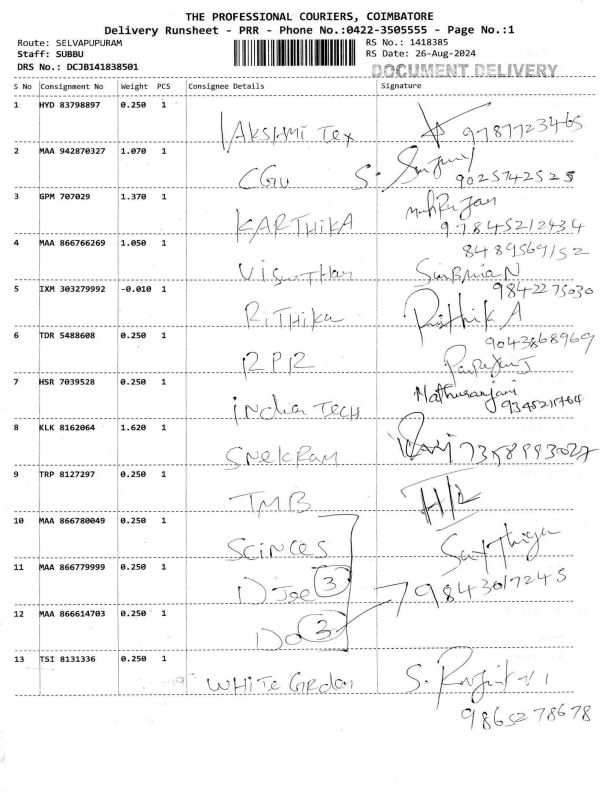 THE PROFESSIONAL COURIERS, COIMBATORE
Delivery Runsheet - PRR - Phone No.:0422-3505555 - Page No.:1
Route: SELVAPUPURAM
RS No.: 1418385
Staff: SUBBU
RS Date: 26-Aug-2024
DRS No.: DCJB141838501
DOCUMENT DELIVERY
S No Consignment No Weight PCS Consignee Details Signature
1 HYD 83798897 0.250 1
LAKSHMI Tex 9787723465
2 MAA 942870327 1.070 1
CGU S. 9025742525
3 GPM 707029 1.370 1
KARTHIKA 97845212434
4 MAA 866766269 1.050 1
8489569152
5 IXM 303279992 -0.010 1
9842275030
RiTHika RithikA
6 TDR 5488608 0.250 1
9043868969
RPR
7 HSR 7039528 0.250 1
Mathuranjani
9345211764
india TECH
8 KLK 8162064 1.620 1
SNeKRAM
9 TRP 8127297 0.250 1
TMB
10 MAA 866780049 0.250 1
SCiNCES
11 MAA 866779999 0.250 1
DJoe 3 9843017245
12 MAA 866614703 0.250 1
Do 3
13 TSI 8131336 0.250 1
WHITe GRden S.
9865278678